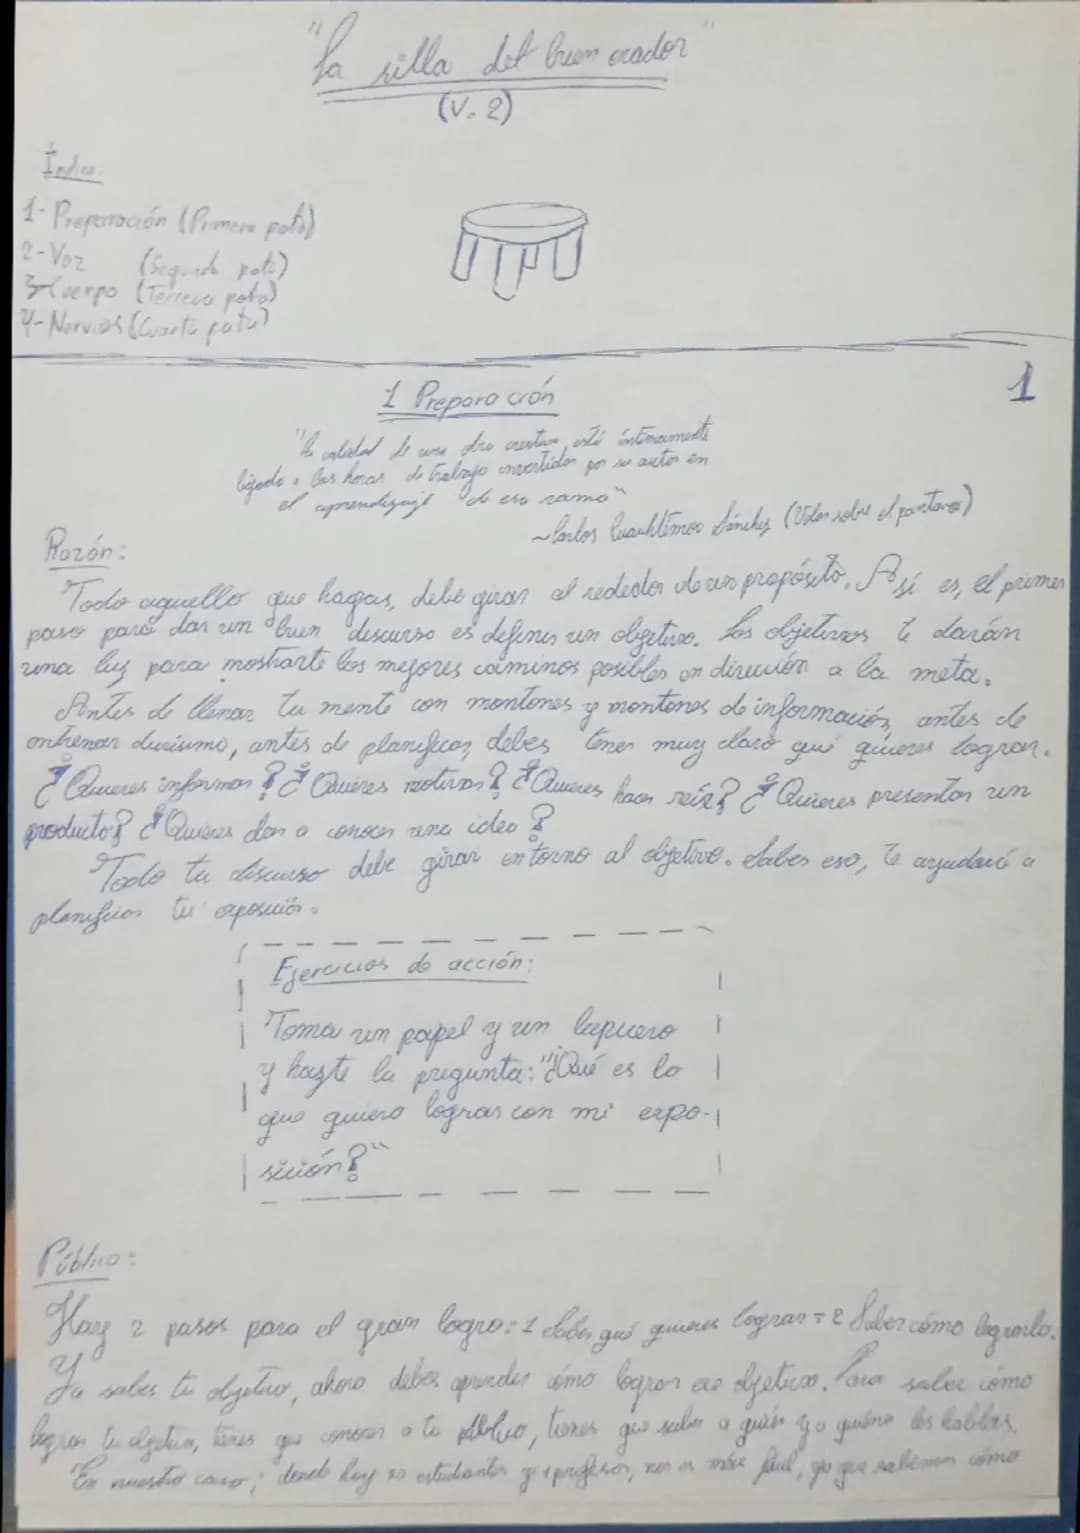 "La silla del buen orador"
(V. 2)
Índice
1- Preparación (Primera pata)
2- Voz (Segunda pata)
3- Cuerpo (Tercera pata)
4- Nervios (Cuarta pata)
1
1 Preparación
"La calidad de una obra creativa está íntimamente
ligada a las horas de trabajo invertidas por su autor en
el aprendizaje de esa rama"
~Carlos Cuauhtémoc Sánchez (Volar sobre el pantano)
Razón:
Todo aquello que hagas, debe girar al rededor de un propósito. Así es, el primer
paso para dar un buen discurso es definir un objetivo. Los objetivos te darán
una luz para mostrarte los mejores caminos posibles en dirección a la meta.
Antes de llenar tu mente con montones y montones de información, antes de
entrenar durísimo, antes de planificar, debes tener muy claro qué quieres lograr.
¿Quieres informar? ¿Quieres motivar? ¿Quieres hacer reír? ¿Quieres presentar un
producto? ¿Quieres dar a conocer una idea?
Todo tu discurso debe girar en torno al objetivo. Saber eso, te ayudará a
planificar tu exposición.
Ejercicios de acción:
Toma un papel y un lapicero
y hazte la pregunta: "¿Qué es lo
que quiero lograr con mi expo-
sición?"
Público:
Hay 2 pasos para el gran logro: 1 Saber qué quieres lograr 2 Saber cómo lograrlo.
Ya sabes tu objetivo, ahora debes aprender cómo lograr ese objetivo. Para saber cómo
lograr tu objetivo, tienes que conocer a tu público, tienes que saber a quién y a quiénes les hablas.
En nuestro caso; donde hay estudiantes y 1 profesor, nos es más fácil, ya que sabemos cómo